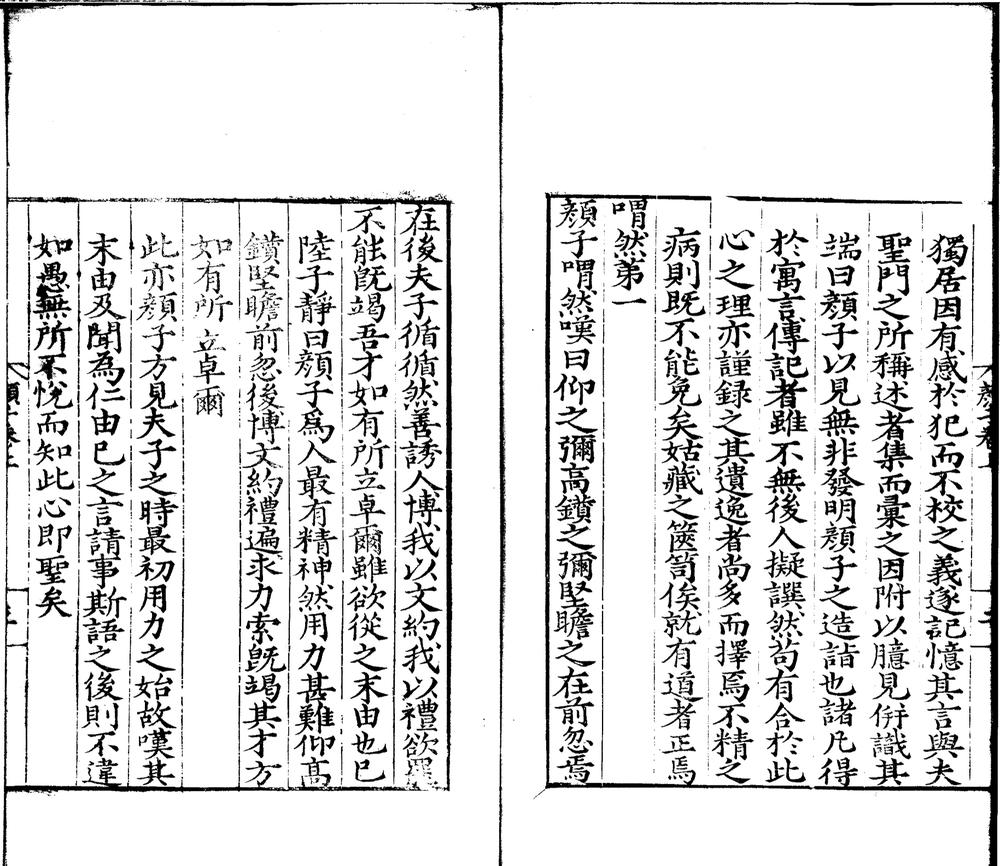 獨居因有感於犯而不校之義遂記憶其言與夫
聖門之所稱述者集而彙之因附以臆見併識其
端曰顔子以見無非發明顔子之造詣也諸凡得
於寓言傳記者雖不無後人擬譔然苟有合於此
心之理亦謹録之其遺逸者尚多而擇焉不精之
病則既不能免矣姑藏之篋笥俟就有道者正焉
喟然第一
顔子喟然嘆曰仰之彌高鑽之彌堅瞻之在前忽焉
在後夫子循循然善誘人博我以文約我以禮欲罷
不能旣竭吾才如有所立卓爾雖欲從之末由也已
陸子靜曰顔子爲人最有精神然用力甚難仰高
鑽堅瞻前忽後博文約禮遍求力索旣竭其才方
如有所立卓爾
此亦顔子方見夫子之時最初用力之始故嘆其
末由及聞為仁由已之言請事斯語之後則不違
如愚無所不悅而知此心即聖矣